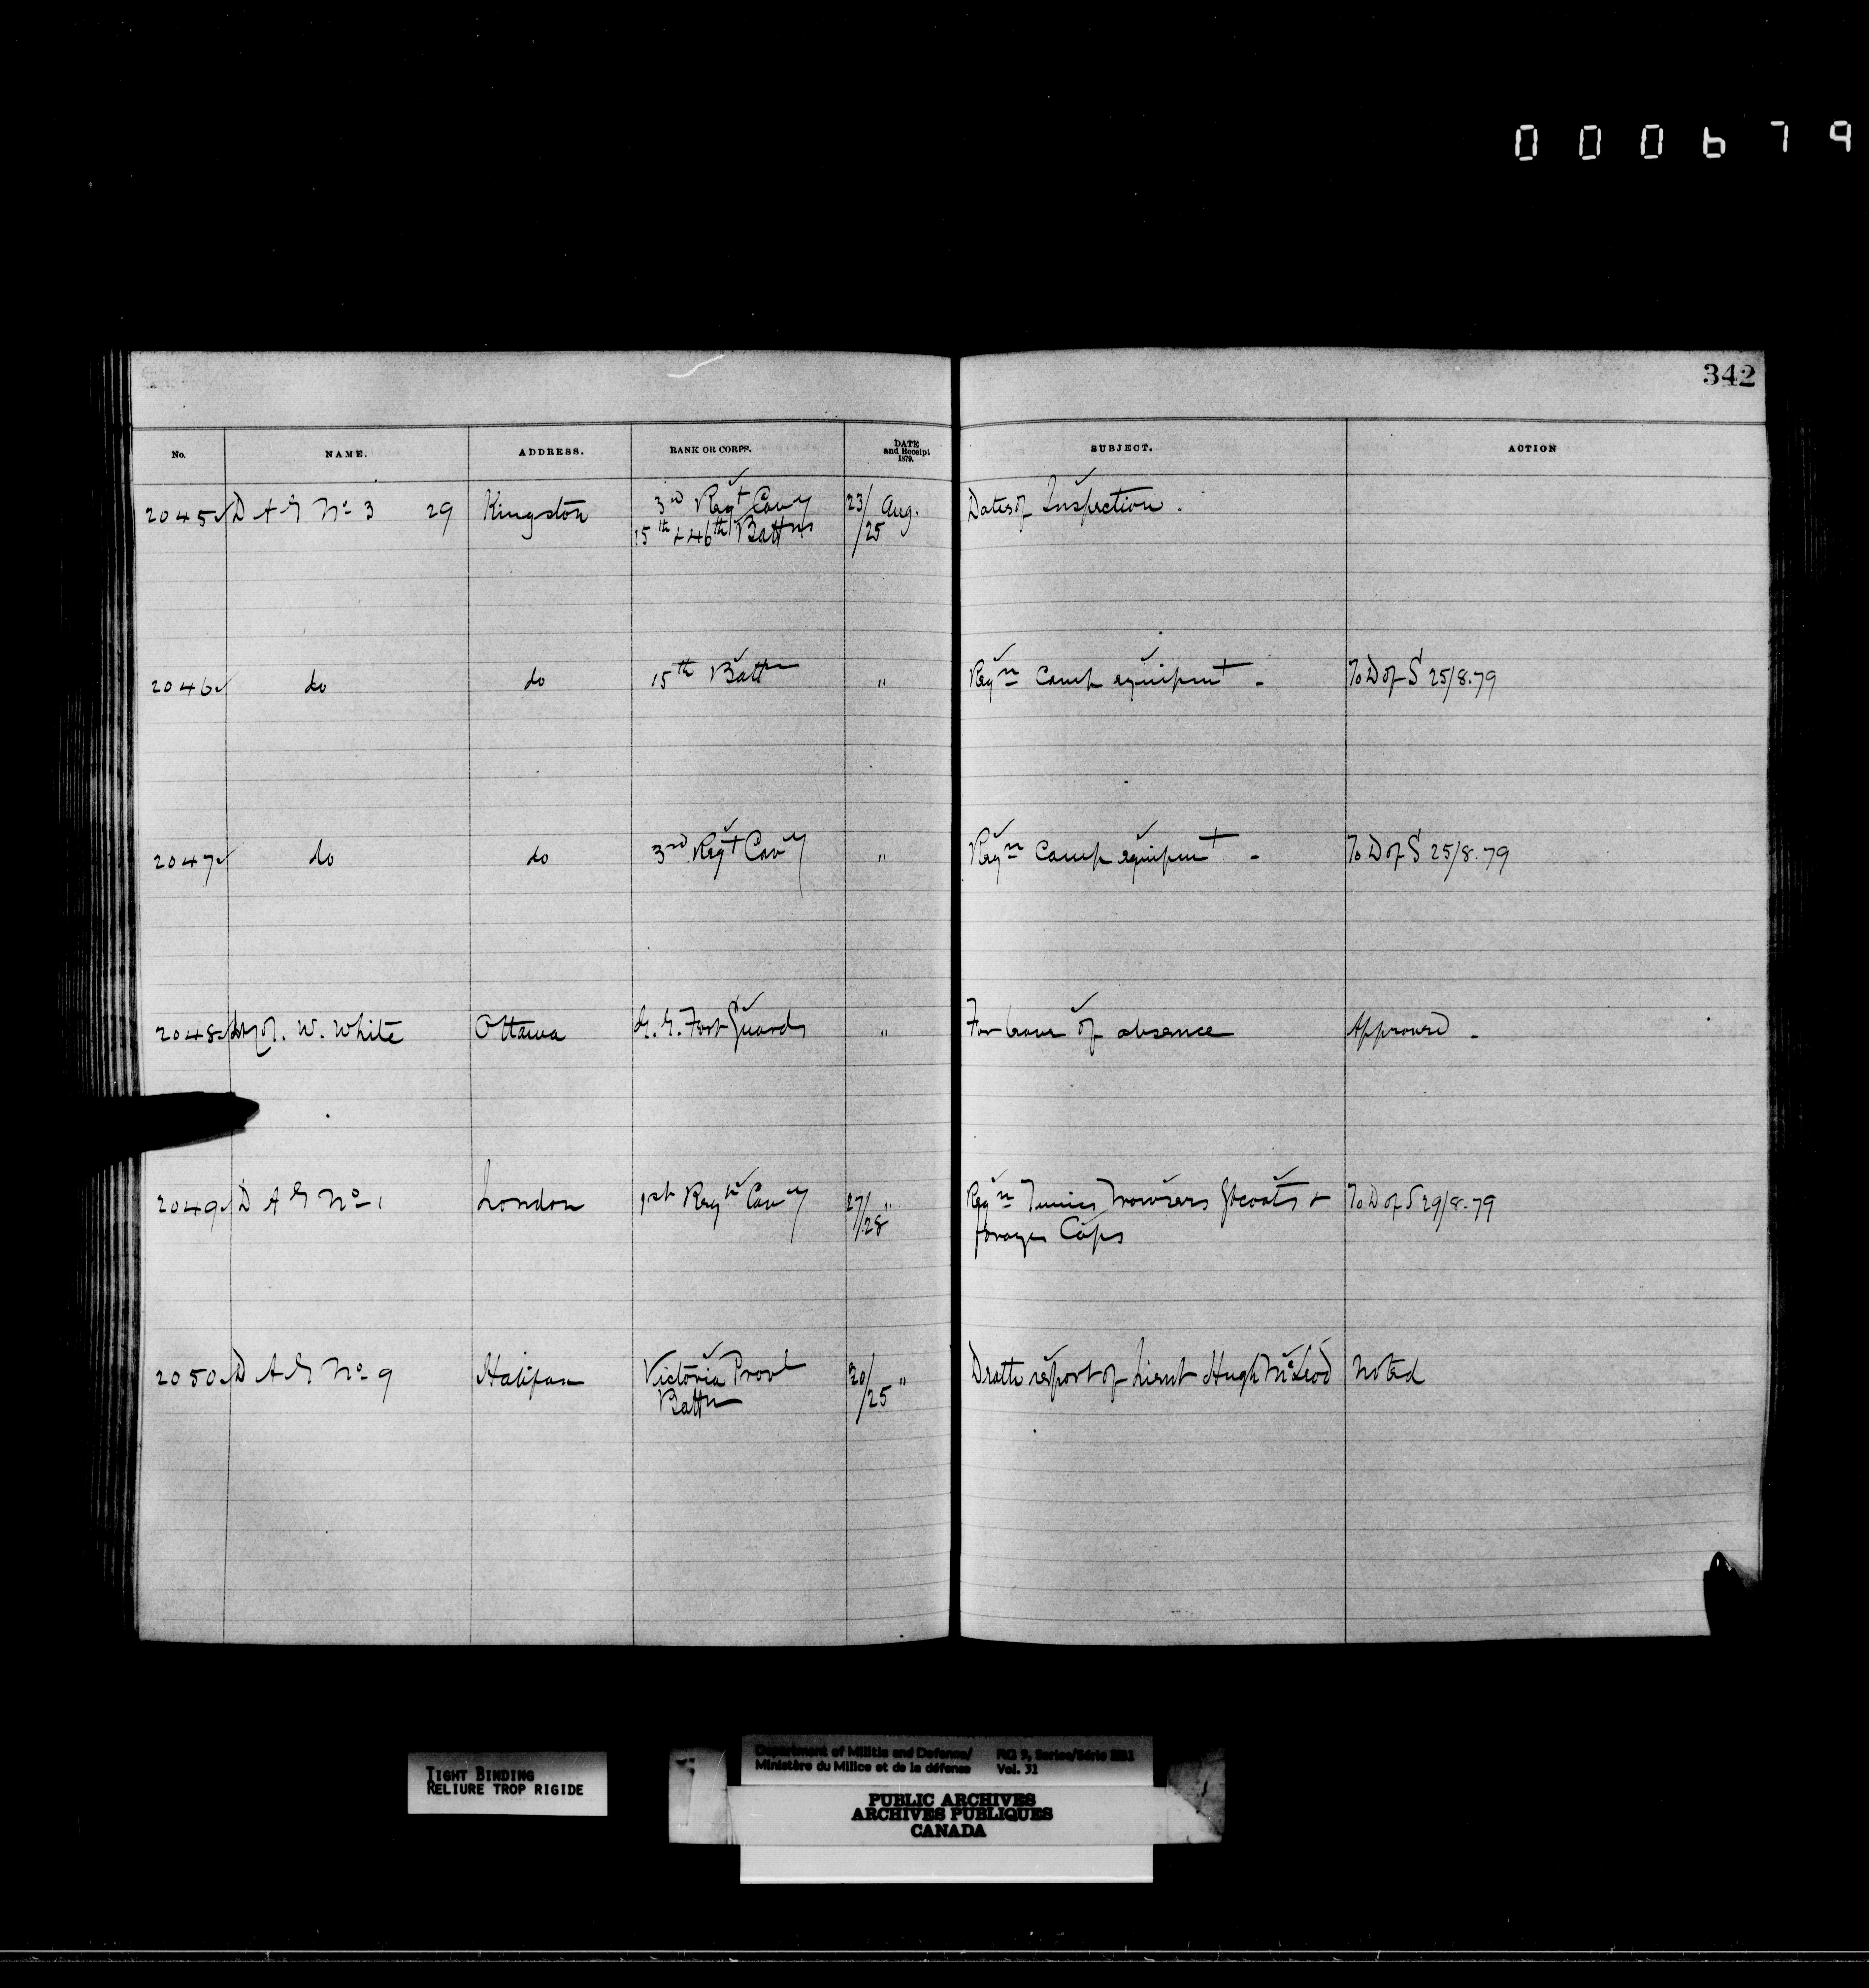 000679
342
No. NAME. ADDRESS. RANK OR CORPS. DATE and Receipt 1879. SUBJECT. ACTION
2045 D A G No 3 29 Kingston 3rd Regt Cavy 23/ Aug. Dates of Inspection.
15th & 46th Battns /25
2046 do do 15th Battn " Reqn Camp equipmt - To D of S 25/8.79
2047 do do 3rd Regt Cavy " Reqn Camp equipmt - To D of S 25/8.79
2048 W. White Ottawa G. G. Foot Guards " For leave of absence Approved.
2049 D A G No 1 London 1st Regt Cavy 27/ " Reqn Tunics Trowsers Gtcoats & To D of S 29/8.79
/28 forage Caps
2050 D A G No 9 Halifax Victoria Provl 20/ " Death report of Lieut Hugh McLeod Noted
Battn /25
TIGHT BINDING
RELIURE TROP RIGIDE
Department of Militia and Defence/ RG 9, Series/Série IIB1
Ministère du Milice et de la défense Vol. 31
PUBLIC ARCHIVES
ARCHIVES PUBLIQUES
CANADA